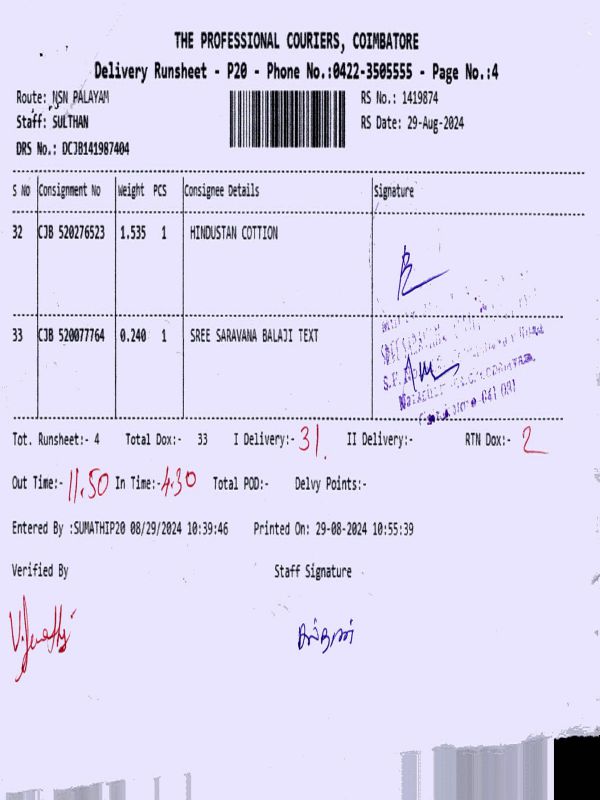 THE PROFESSIONAL COURIERS, COIMBATORE
Delivery Runsheet - P20 - Phone No.:0422-3505555 - Page No.:4
Route: NSN PALAYAM RS No.: 1419874
Staff: SULTHAN RS Date: 29-Aug-2024
DRS No.: DCJB141987404
S No Consignment No Weight PCS Consignee Details Signature
32 CJB 520276523 1.535 1 HINDUSTAN COTTION
33 CJB 520077764 0.240 1 SREE SARAVANA BALAJI TEXT
Tot. Runsheet:- 4 Total Dox:- 33 I Delivery:- 31 II Delivery:- RTN Dox:- 2
Out Time:- 11.50 In Time:- 4.30 Total POD:- Delvy Points:-
Entered By :SUMATHIP20 08/29/2024 10:39:46 Printed On: 29-08-2024 10:55:39
Verified By Staff Signature
சுல்தான்